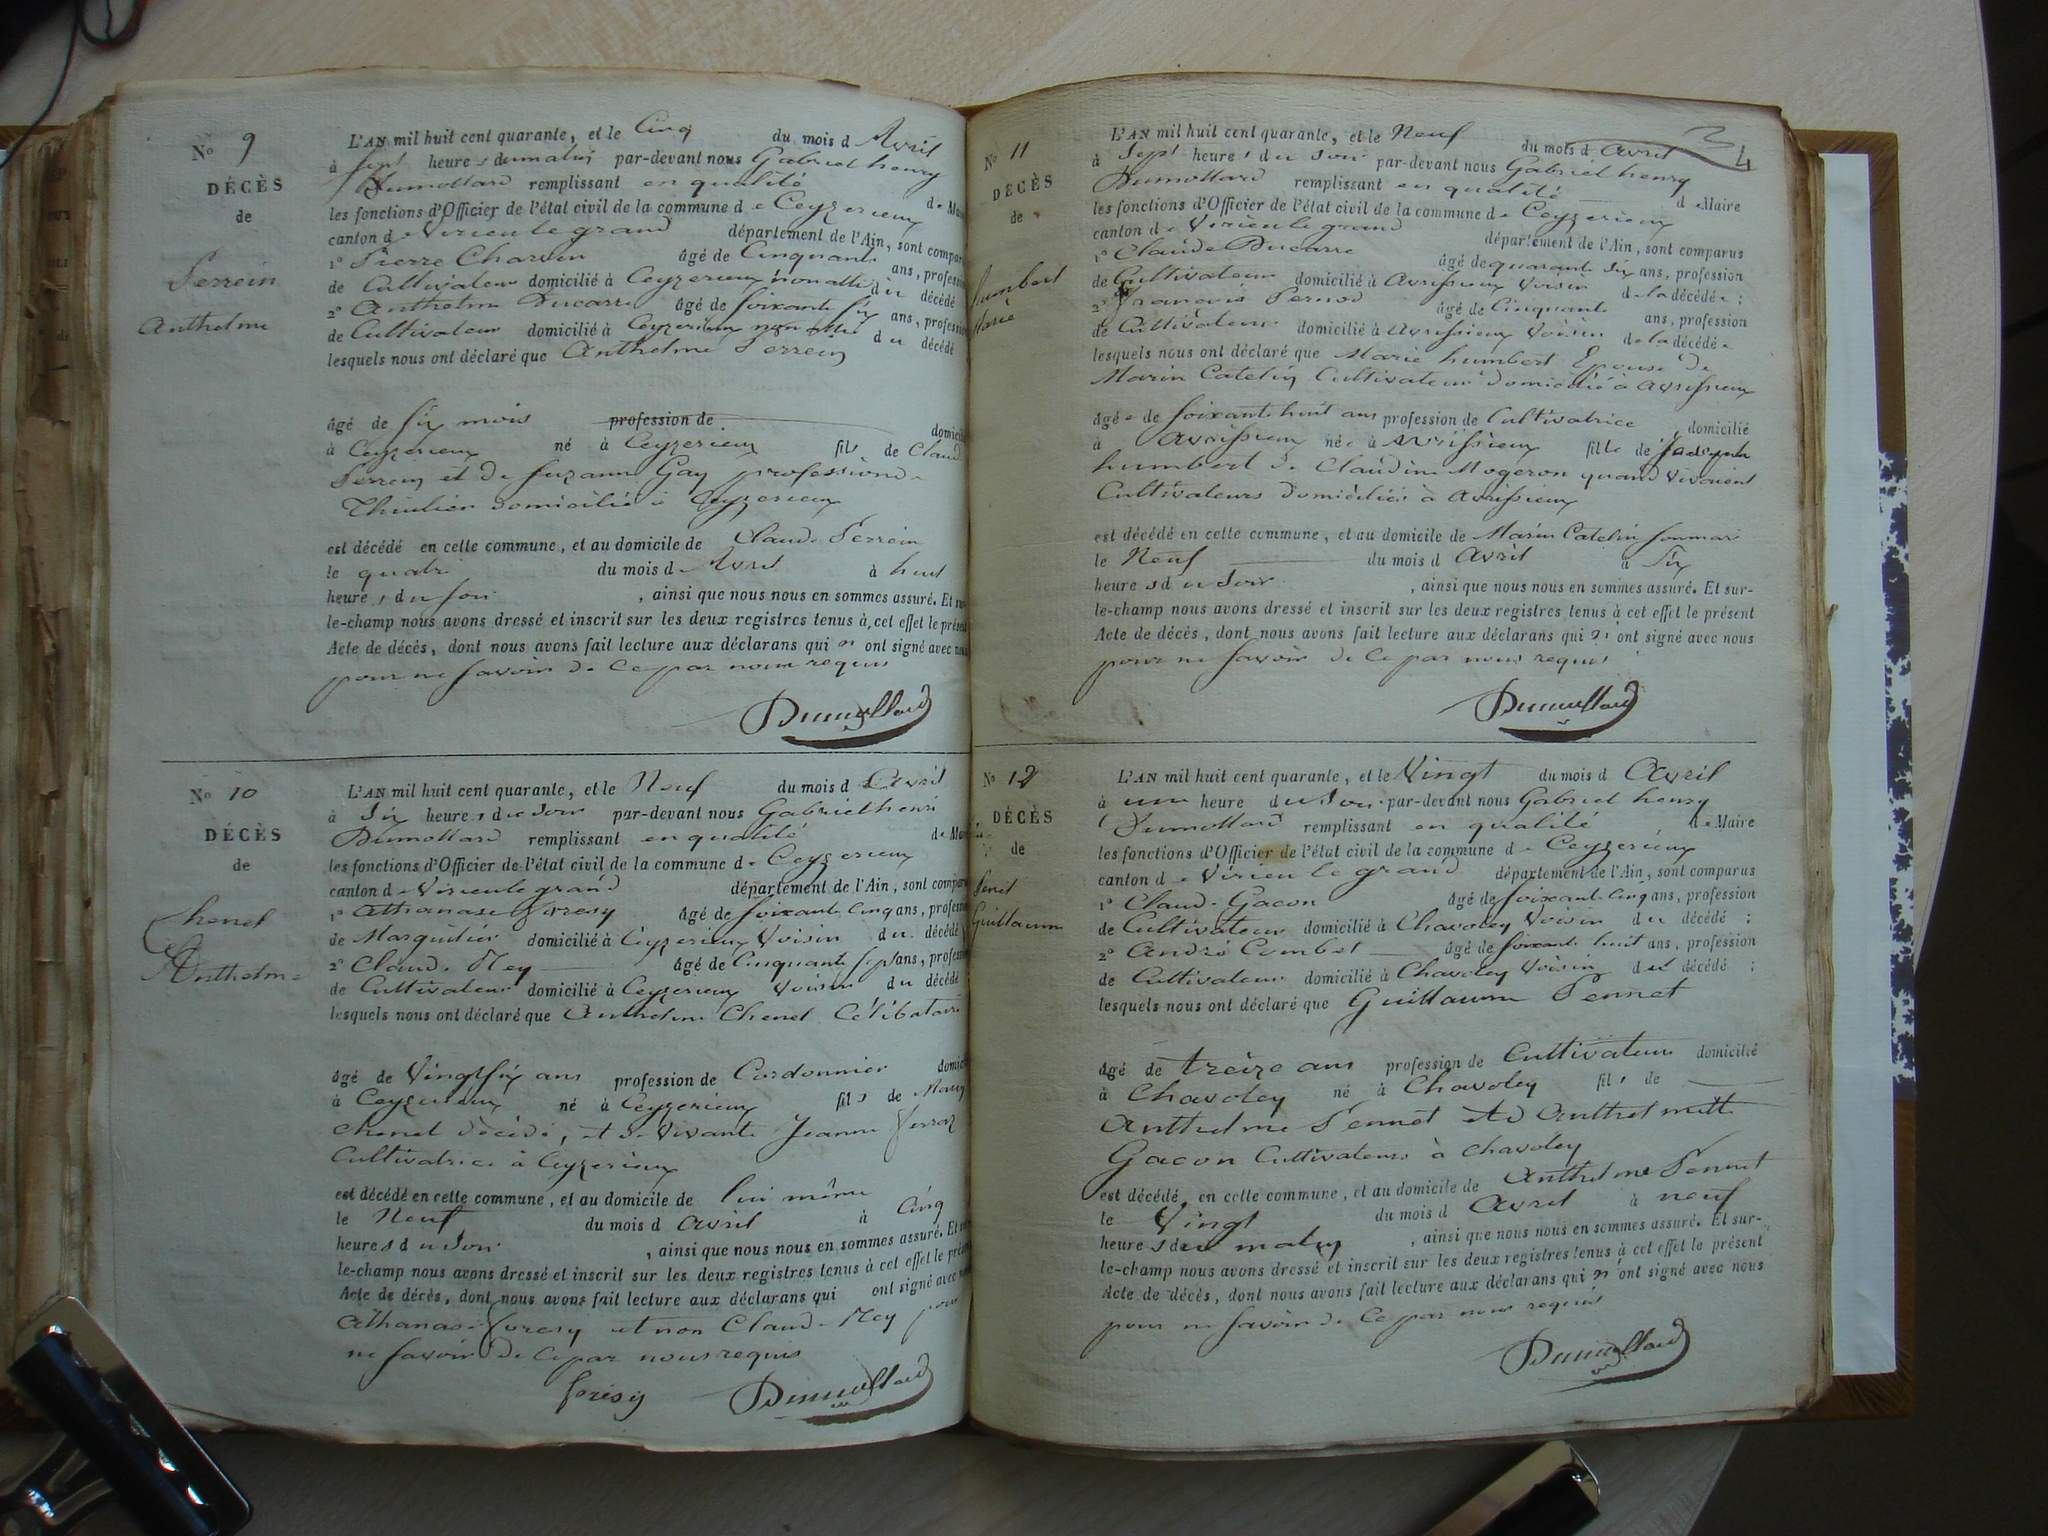 No 9
DÉCÈS
de
Perrein
Anthelme
L'AN mil huit cent quarante, et le Cinq du mois d Avril
à Sept heures du matin par-devant nous Gabriel henry
Dumollard remplissant en qualité de Maire
les fonctions d'Officier de l'état civil de la commune de Ceyzerieux
canton de Virieu le grand département de l'Ain, sont comparus
1° Pierre Charvin âgé de Cinquante ans, profession
de Cultivateur domicilié à Ceyzerieux non allié du décédé
2° Anthelme Ducarre âgé de soixante six ans, profession
de Cultivateur domicilié à Ceyzerieux non allié du décédé
lesquels nous ont déclaré que Anthelme Perrein
âgé de six mois profession de domicilié
à Ceyzerieux né à Ceyzerieux fils de Claude
Perrein et de Suzanne Gay profession de
Thuilier domicilié à Ceyzerieux
est décédé en cette commune, et au domicile de Claude Perrein
le quatre du mois d Avril à huit
heures du soir , ainsi que nous nous en sommes assuré. Et sur-
le-champ nous avons dressé et inscrit sur les deux registres tenus à cet effet le présent
Acte de décès, dont nous avons fait lecture aux déclarans qui n' ont signé avec nous
pour ne savoir de ce par nous requis
Dumollard
No 10
DÉCÈS
de
Chenet
Anthelme
L'AN mil huit cent quarante, et le Neuf du mois d Avril
à Six heures du soir par-devant nous Gabriel henri
Dumollard remplissant en qualité de Maire
les fonctions d'Officier de l'état civil de la commune de Ceyzerieux
canton de Virieu le grand département de l'Ain, sont comparus
1° Athanase âgé de soixante cinq ans, profession
de Marguilier domicilié à Ceyzerieux Voisin du décédé
2° Claude Mey âgé de Cinquante sept ans, profession
de Cultivateur domicilié à Ceyzerieux Voisin du décédé
lesquels nous ont déclaré que Anthelme Chenet Célibataire
âgé de Vingt six ans profession de Cordonnier domicilié
à Ceyzerieux né à Ceyzerieux fils de
Chenet décédé, et de vivante Jeanne
Cultivatrice à Ceyzerieux
est décédé en cette commune, et au domicile de lui même
le Neuf du mois d avril à Cinq
heures du soir , ainsi que nous nous en sommes assuré. Et sur-
le-champ nous avons dressé et inscrit sur les deux registres tenus à cet effet le présent
Acte de décès, dont nous avons fait lecture aux déclarans qui ont signé avec nous
Athanase et non Claude Mey pour
ne savoir de ce par nous requis
Dumollard
34
No 11
DÉCÈS
de
humbert
Marie
L'AN mil huit cent quarante, et le Neuf du mois d avril
à Sept heures du Soir par-devant nous Gabriel henry
Dumollard remplissant en qualité de Maire
les fonctions d'Officier de l'état civil de la commune de Ceyzerieux
canton de Virieu le grand département de l'Ain, sont comparus
1° Claude Ducarre âgé de quarante six ans, profession
de Cultivateur domicilié à Avrissieux Voisin de la décédée ;
2° François Pernod âgé de Cinquante ans, profession
de Cultivateur domicilié à avrissieux Voisin de la décédée
lesquels nous ont déclaré que Marie humbert Epouse de
Marin Catelin Cultivateur domicilié à avrissieux
âgée de soixante huit ans profession de Cultivatrice domicilié
à avrissieux née à avrissieux fille de Joseph
humbert de Claudine Mogeron quand vivoient
Cultivateurs domiciliés à avrissieux
est décédé en cette commune, et au domicile de Marin Catelin son mari
le Neuf du mois d Avril à Six
heures du Soir , ainsi que nous nous en sommes assuré. Et sur-
le-champ nous avons dressé et inscrit sur les deux registres tenus à cet effet le présent
Acte de décès, dont nous avons fait lecture aux déclarans qui n' ont signé avec nous
pour ne savoir de ce par nous requis
Dumollard
No 12
DÉCÈS
de
Penet
Guillaume
L'AN mil huit cent quarante, et le Vingt du mois d Avril
à une heure du Soir par-devant nous Gabriel henry
Dumollard remplissant en qualité de Maire
les fonctions d'Officier de l'état civil de la commune de Ceyzerieux
canton de Virieu le grand département de l'Ain, sont comparus
1° Claude Gacon âgé de soixante cinq ans, profession
de Cultivateur domicilié à Chavoley Voisin du décédé ;
2° André Combet âgé de soixante huit ans, profession
de Cultivateur domicilié à Chavoley Voisin du décédé ;
lesquels nous ont déclaré que Guillaume Pennet
âgé de treize ans profession de Cultivateur domicilié
à Chavoley né à Chavoley fils de
Anthelme Pennet et d Anthelmette
Gacon Cultivateurs à Chavoley
est décédé en cette commune, et au domicile de Anthelme Pennet
le Vingt du mois d Avril à neuf
heures du matin , ainsi que nous nous en sommes assuré. Et sur-
le-champ nous avons dressé et inscrit sur les deux registres tenus à cet effet le présent
Acte de décès, dont nous avons fait lecture aux déclarans qui n' ont signé avec nous
pour ne savoir de ce par nous requis
Dumollard